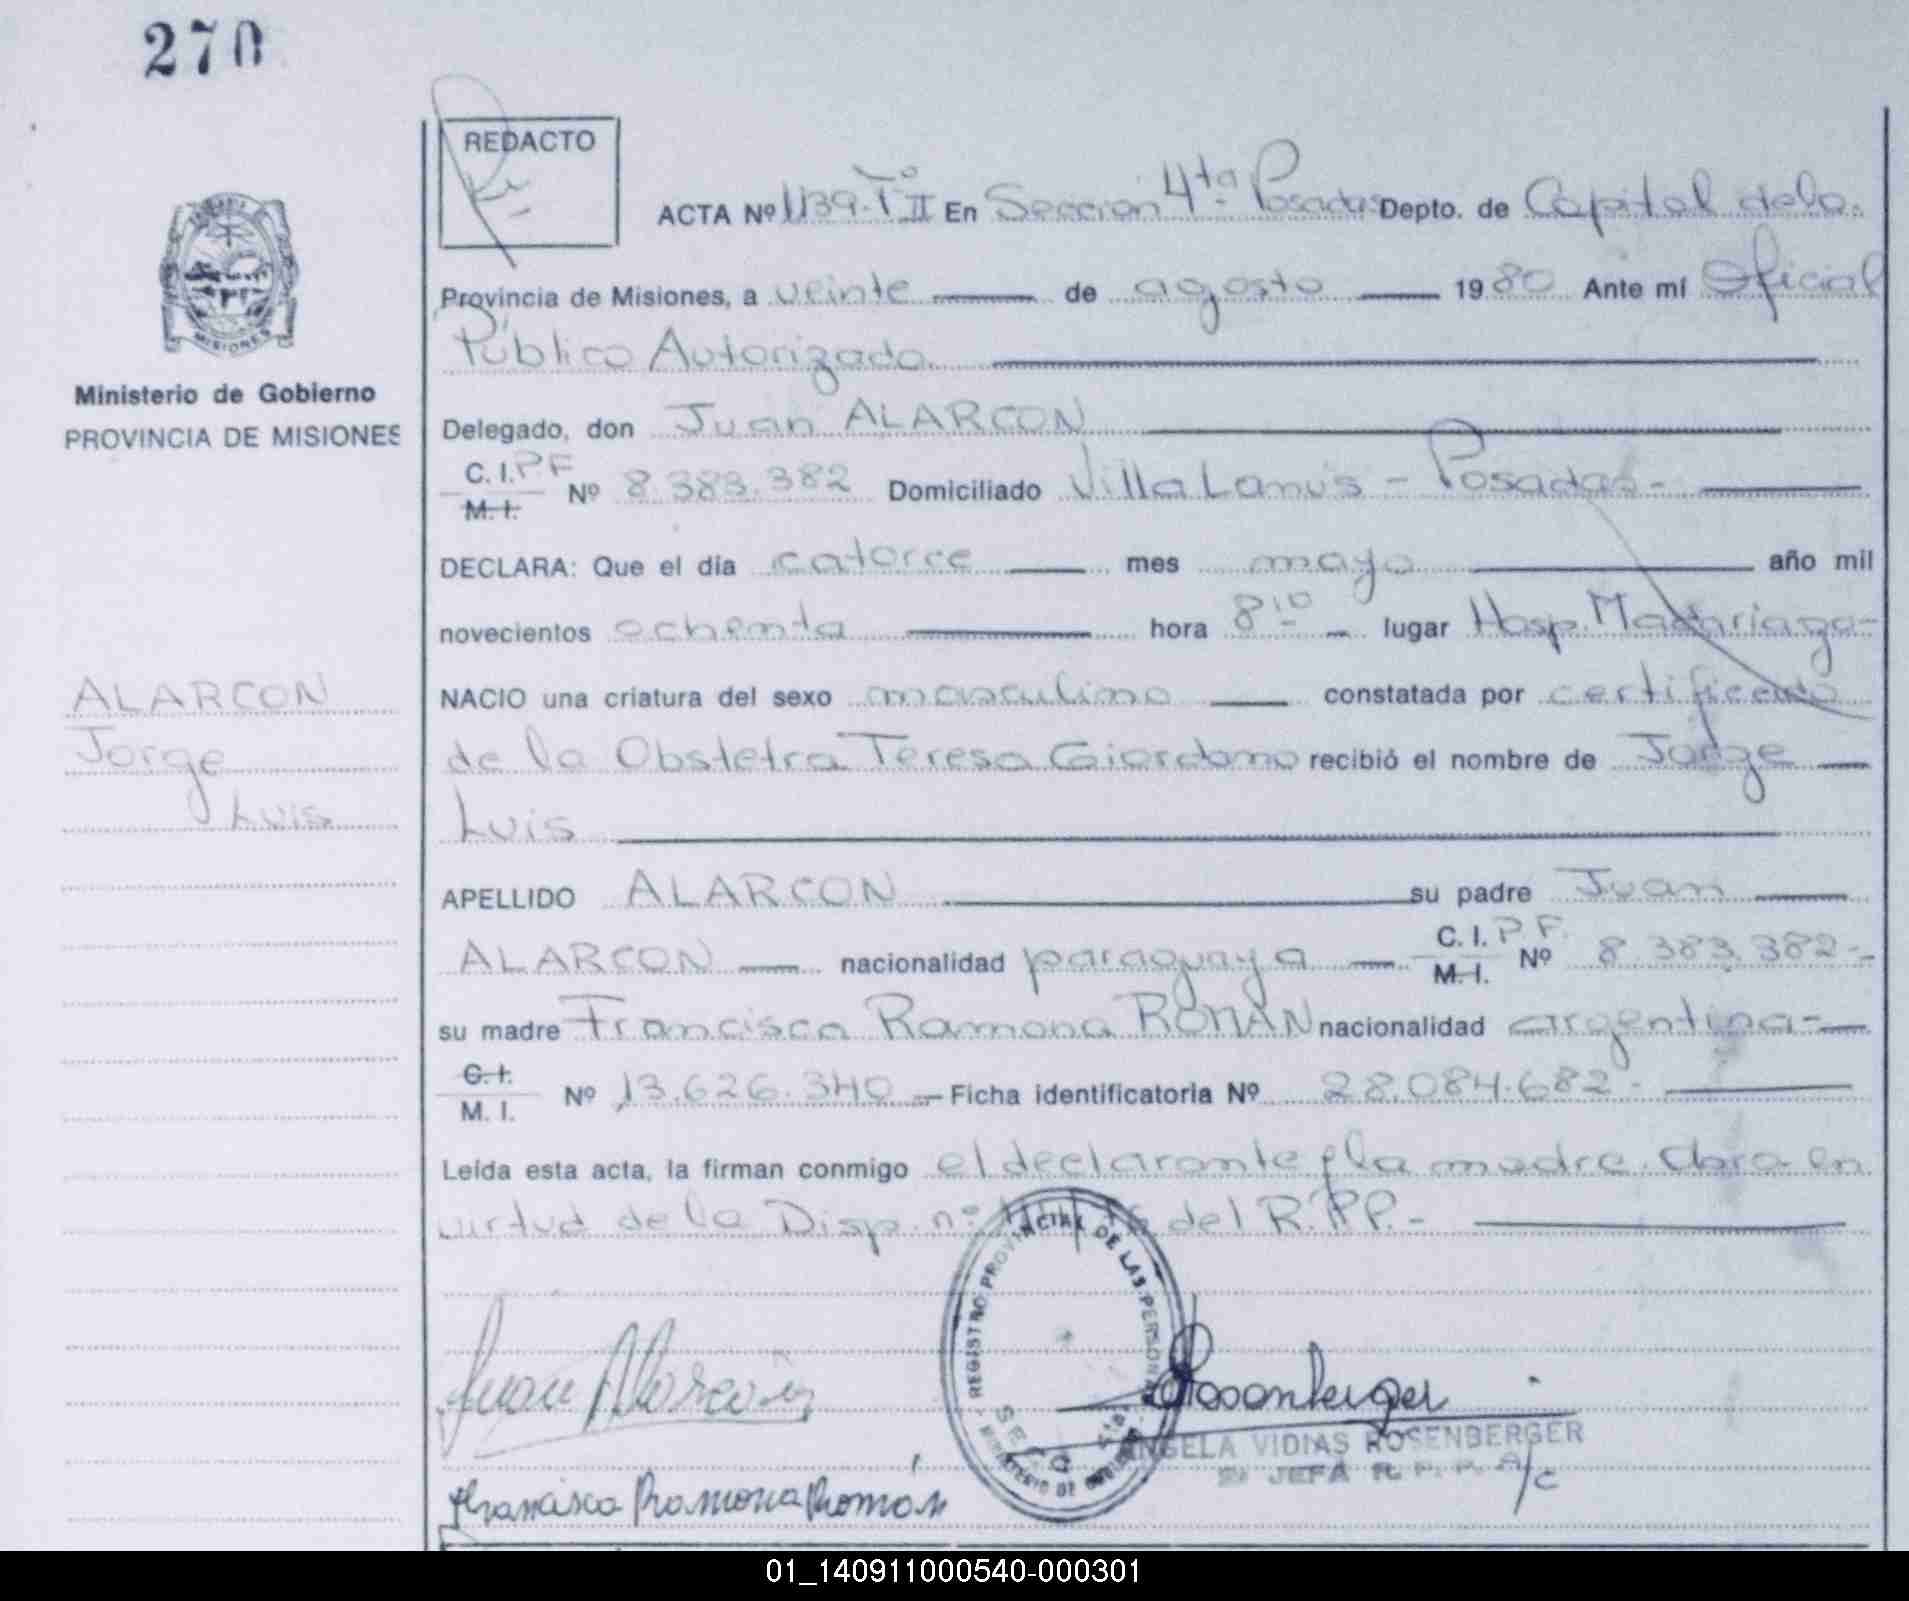 270
REDACTO
ACTA Nº 1139-Tº II En Sección 4ta. Posadas Depto. de Capital de la
Provincia de Misiones, a veinte de agosto 1980 Ante mí Oficial
Público Autorizado.
Ministerio de Gobierno
PROVINCIA DE MISIONES
MISIONES
Delegado, don Juan ALARCON
C. I. P F
M. I. Nº 8.383.382 Domiciliado Villa Lanús - Posadas-
DECLARA: Que el día catorce mes mayo año mil
novecientos ochenta hora 8,10 lugar Hosp. Madariaga-
NACIO una criatura del sexo masculino constatada por certificado
de la Obstetra Teresa Giordano recibió el nombre de Jorge
Luis
ALARCON
Jorge
Luis
APELLIDO ALARCON su padre Juan
ALARCON nacionalidad paraguaya C. I. P.F. M. I. Nº 8.383.382-
su madre Francisca Ramona ROMAN nacionalidad argentina-
C. I.
M. I. Nº 13.626.340 Ficha identificatoria Nº 28.084.682-
Leída esta acta, la firman conmigo el declarante y la madre. Obra en
virtud de la Disp. nº del R.P.P.-
REGISTRO PROVINCIAL DE LAS PERSONAS
SECC 4ta
MINISTERIO DE GOBIERNO
Juan Alarcón
Rosenberger
ANGELA VIDIAS ROSENBERGER
JEFA R. P. P. A/c
Francisca Ramona Román
01_140911000540-000301